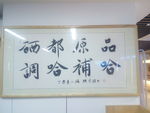 硒都原品
調哈補哈